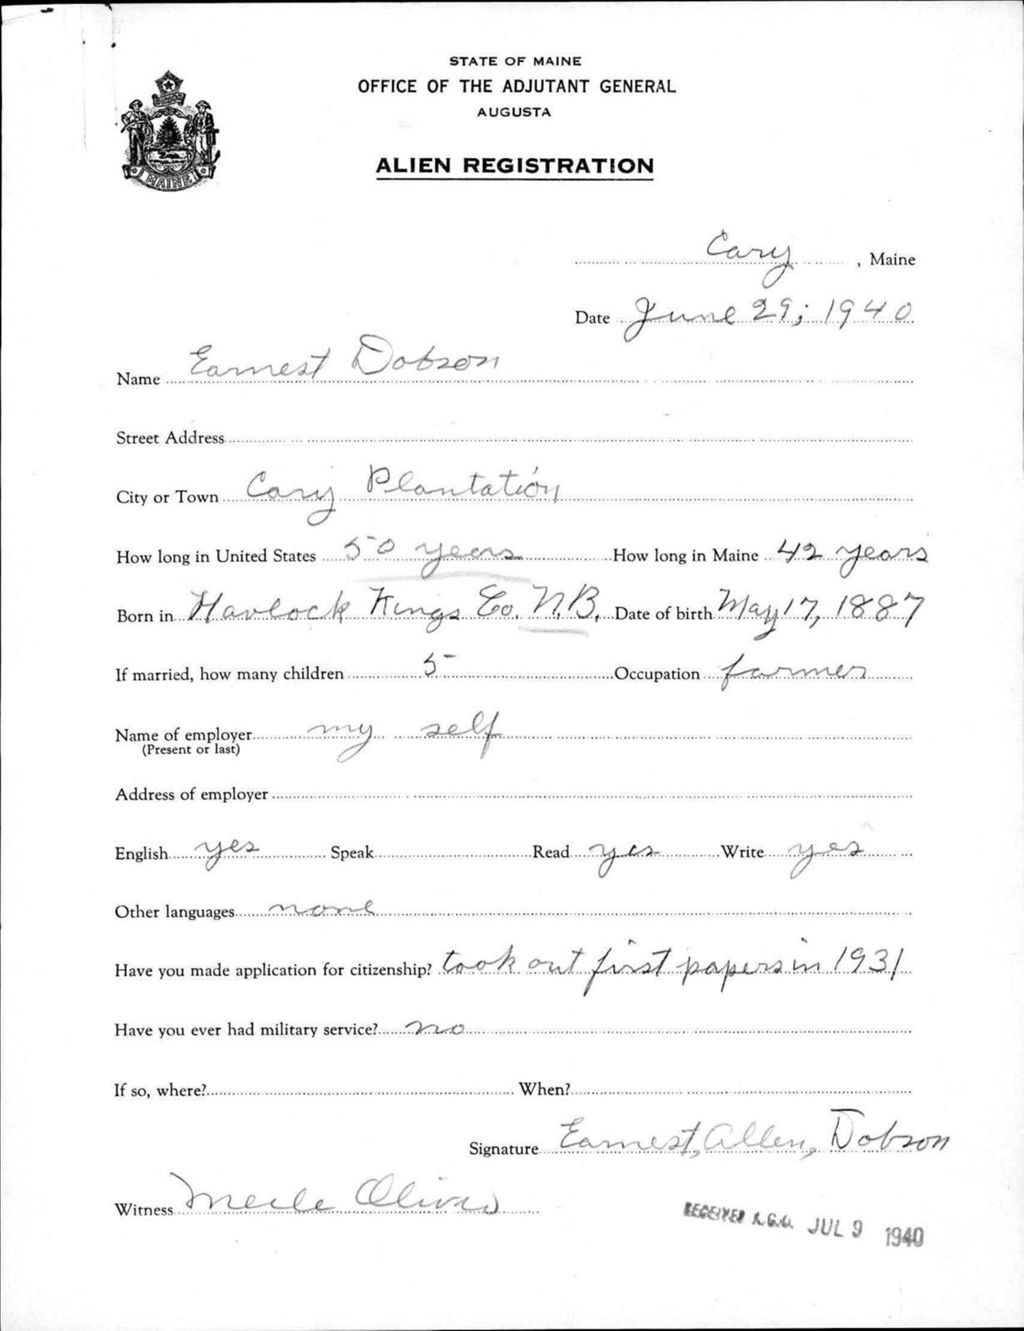 STATE OF MAINE
OFFICE OF THE ADJUTANT GENERAL
AUGUSTA
ALIEN REGISTRATION
MAINE
Cary, Maine
Date June 29; 1940
Name Earnest Dobson
Street Address
City or Town Cary Plantation
How long in United States 50 years How long in Maine 42 years
Born in Havlock Kings Co. N.B. Date of birth May 17, 1887
If married, how many children 5 Occupation farmer
Name of employer my self
(Present or last)
Address of employer
English yes Speak Read yes Write yes
Other languages none
Have you made application for citizenship? took out first papers in 1931
Have you ever had military service? no
If so, where? When?
Signature Earnest, Allen, Dobson
Witness Merle Oliver
RECEIVED A.G.O. JUL 9 1940